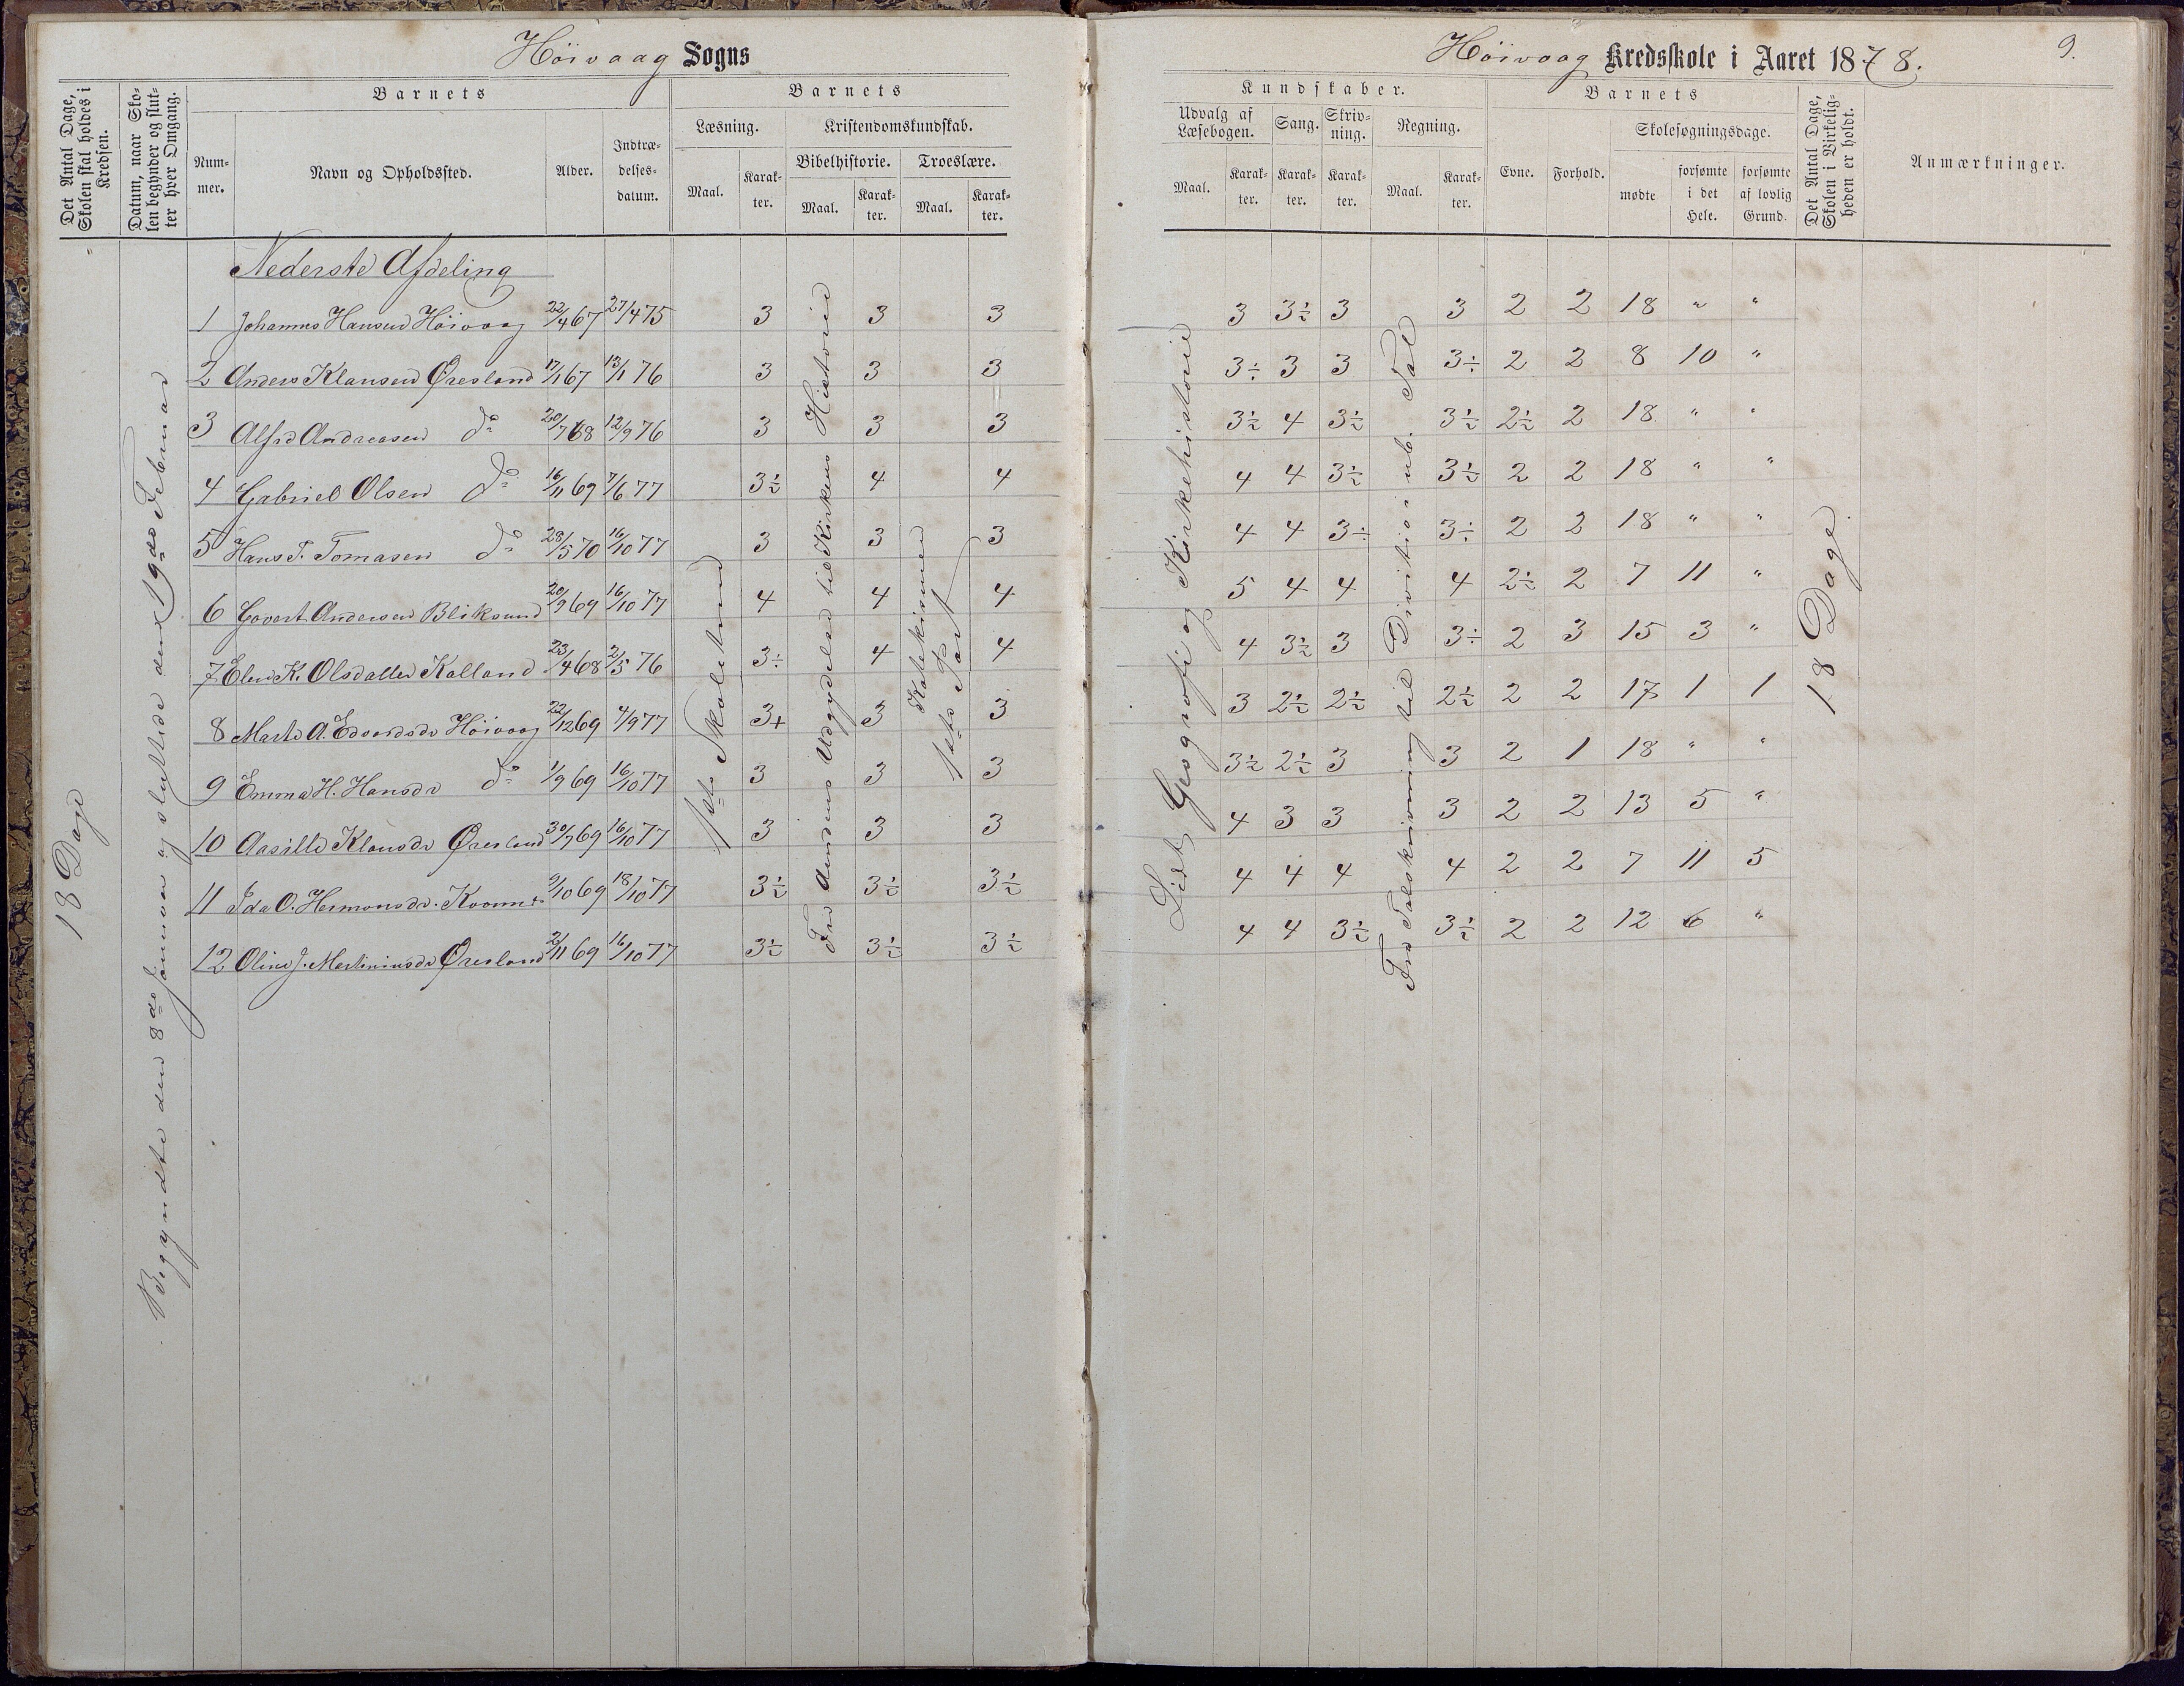 Höivaag Sogns
Det Antal Dage, Skolen skal holdes i Kredsen.
Datum, naar Skolen begynder og slutter hver Omgang.
Barnets
Nummer.
Navn og Opholdssted.
Alder.
Indtrædelsesdatum.
Barnets
Læsning.
Kristendomskundskab.
Bibelhistorie.
Troeslære.
Maal.
Karakter.
Maal.
Karakter.
Maal.
Karakter.
18 Dage
Begyndte den 8de Januar og sluttede den 19de Februar
Nederste Afdeling
1 Johannes Hansen Höivaag 22/4 67 27/4 75 3 3 3
2 Anders Klausen Øresland 17/1 67 13/1 76 3 3 3
3 Alfred Andreasen do 20/7 68 12/9 76 3 3 3
4 Gabriel Olsen do 16/11 69 7/6 77 3½ 4 4
5 Hans T. Tomasen do 28/5 70 16/10 77 3 3 3
6 Govert Andersen Bliksund 20/9 69 16/10 77 4 4 4
7 Elen K. Olsdatter Kalland 23/4 68 2/5 76 3÷ 4 4
8 Marte A. Edvardsdr Höivaag 22/12 69 4/9 77 3+ 3 3
9 Emma H. Hansdr do 1/9 69 16/10 77 3 3 3
10 Aasille Klausdr Øresland 30/7 69 16/10 77 3 3 3
11 Ida O. Hermansdr. 9/10 69 18/10 77 3½ 3½ 3½
12 Oline J. Martinius dr Øresland 2/11 69 16/10 77 3½ 3½ 3½
1ste Skoletrin
Fra Aandens Udgydelse til Kirkens Historie
Katekismen
1ste Part
Höivaag Kredsskole i Aaret 1878.
9.
Kundskaber.
Udvalg af Læsebogen.
Sang.
Skrivning.
Regning.
Maal.
Karakter.
Karakter.
Karakter.
Maal.
Karakter.
Barnets
Evne.
Forhold.
Skolesøgningsdage.
mødte
forsømte i det Hele.
forsømte af lovlig Grund.
Det Antal Dage, Skolen i Virkeligheden er holdt.
Anmærkninger.
3 3½ 3 3 2 2 18 " "
3÷ 3 3 3÷ 2 2 8 10 "
3½ 4 3½ 3½ 2½ 2 18 " "
4 4 3½ 3½ 2 2 18 " "
4 4 3÷ 3÷ 2 2 18 " "
5 4 4 4 2½ 2 7 11 "
4 3½ 3 3÷ 2 3 15 3 "
3 2½ 2½ 2½ 2 2 17 1 1
3½ 2½ 3 3 2 1 18 " "
4 3 3 3 2 2 13 5 "
4 4 4 4 2 2 7 11 5
4 4 3½ 3½ 2 2 12 6 "
Lidt Geografi og Kirkehistorie
Fra Talskrivning til Division i ub. Tal
18 Dage.